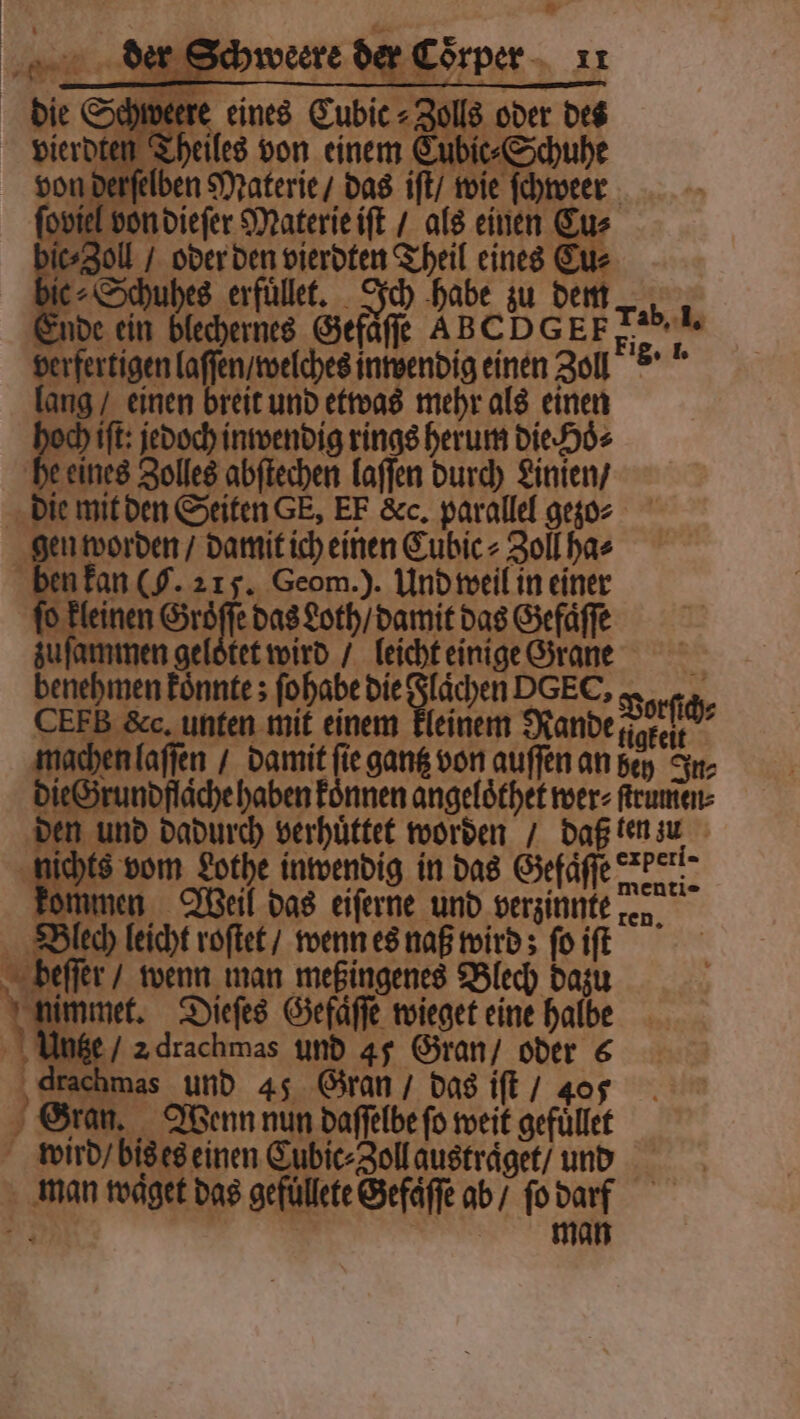 der Schweere der Cörper 11
die Schweere eines Cubic-Zolls oder des
vierdten Theiles von einem Cubic-Schuhe
von derselben Materie / das ist / wie schweer
soviel von dieser Materie ist / als einen Cu-
bic-Zoll / oder den vierdten Theil eines Cu-
bic-Schuhes erfüllet. Ich habe zu dem
Ende ein blechernes Gefässe ABCDGEF
Tab. I.
Fig. I.
verfertigen lassen/welches inwendig einen Zoll
lang / einen breit und etwas mehr als einen
hoch ist: jedoch inwendig rings herum die Hö-
he eines Zolles abstechen lassen durch Linien/
die mit den Seiten GE, EF &c. parallel gezo-
gen worden / damit ich einen Cubic-Zoll ha-
ben kan (§. 215. Geom.). Und weil in einer
so kleinen Grösse das Loth/damit das Gefässe
zusammen gelötet wird / leicht einige Grane
benehmen könnte; so habe die Flächen DGEC,
CEFB &c. unten mit einem kleinem Rande
machen lassen / damit sie gantz von aussen an
die Grundfläche haben können angelöthet wer-
den und dadurch verhüttet worden / daß
nichts vom Lothe inwendig in das Gefässe
kommen Weil das eiserne und verzinnte
Vorsich-
tigkeit
bey In-
strumen-
ten zu
experi-
menti-
ren.
Blech leicht rostet / wenn es naß wird; so ist
besser / wenn man meßingenes Blech dazu
nimmet. Dieses Gefässe wieget eine halbe
Untze / 2 drachmas und 45 Gran/ oder 6
drachmas und 45 Gran / das ist / 405
Gran. Wenn nun dasselbe so weit gefüllet
wird/ bis es einen Cubic-Zoll austräget/ und
man wäget das gefüllete Gefässe ab / so darf
man